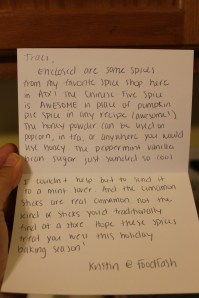 Traci,
Enclosed are some spices
from my favorite spice shop here
in ATX! The Chinese Five Spice
is AWESOME in place of pumpkin
pie spice in any recipe (awesome!)
The honey powder can be used on
popcorn, in tea, or anywhere you would
use honey. The peppermint vanilla
bean sugar just sounded so cool
I couldn't help but to send it
to a mint lover. And the cinnamon
sticks are real cinnamon not the
kind of sticks you'd traditionally
find at a store. Hope these spices
treat you well this holiday
baking season!
Kristin @